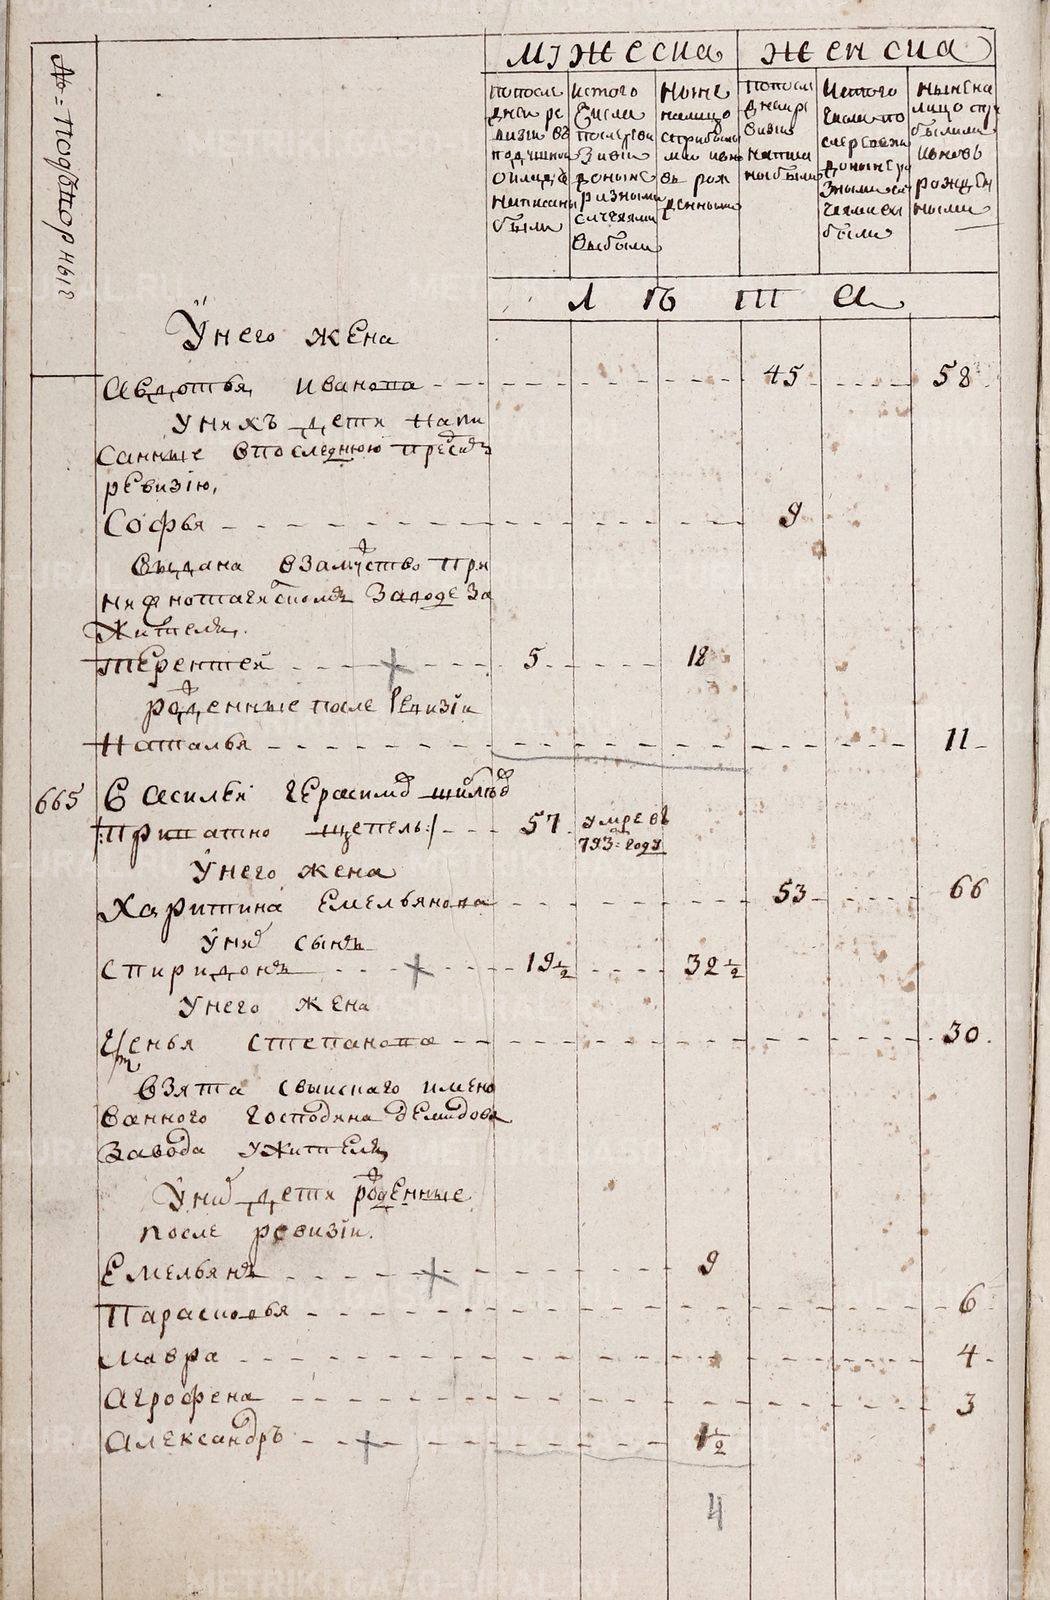 № = Подворныя
мужеска
женска
попосле
дней ре
визiи въ
подушной
окладъ
написаны
были
истого
числа
после реви
зiи
доныне
разными
случаями
выбыли
ныне
налицо
сприбылы
ми ивно
въ рож
денными
попосле
дней ре
визiи
написа
ны были
истого
числа по
сле ревизiи
доныне ра
зными слу
чаями вы
были
ныне на
лицо спри
былыми
ивновь
рожден
ными
лѣта
У него жена
Авдотья Иванова 45 58
У нихъ дети напи
санные впоследнюю предъ
ревизiю,
Софья 9
выдана взамужство при
нижнотагилскомъ заводе за
жителя.
Терентей 5 18
рожденные после ревизiи
Наталья 11
665 Василей Герасимовъ
/:приписано щепель:/ 57 умре въ
793= году
У него жена
Харитина Емельянова 53 66
У них сынъ
Спиридонъ 19½ 32½
У него жена
Ксенья Степанова 30
взята свыискаго имено
ванного господина Демидова
завода у жителя
У них дети рожденные
после ревизiи.
Емельянъ 9
Парасковья 6
Мавра 4
Агрофена 3
Александръ 1½
4
METRIKI.GASO-URAL.RU